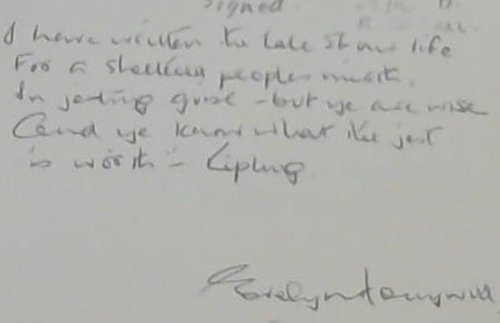 signed.
I have written the tale of our life
For a sheltered people's mirth.
In jesting guise - but ye are wise
And ye know what the jest
is worth - Kipling
Evelyn